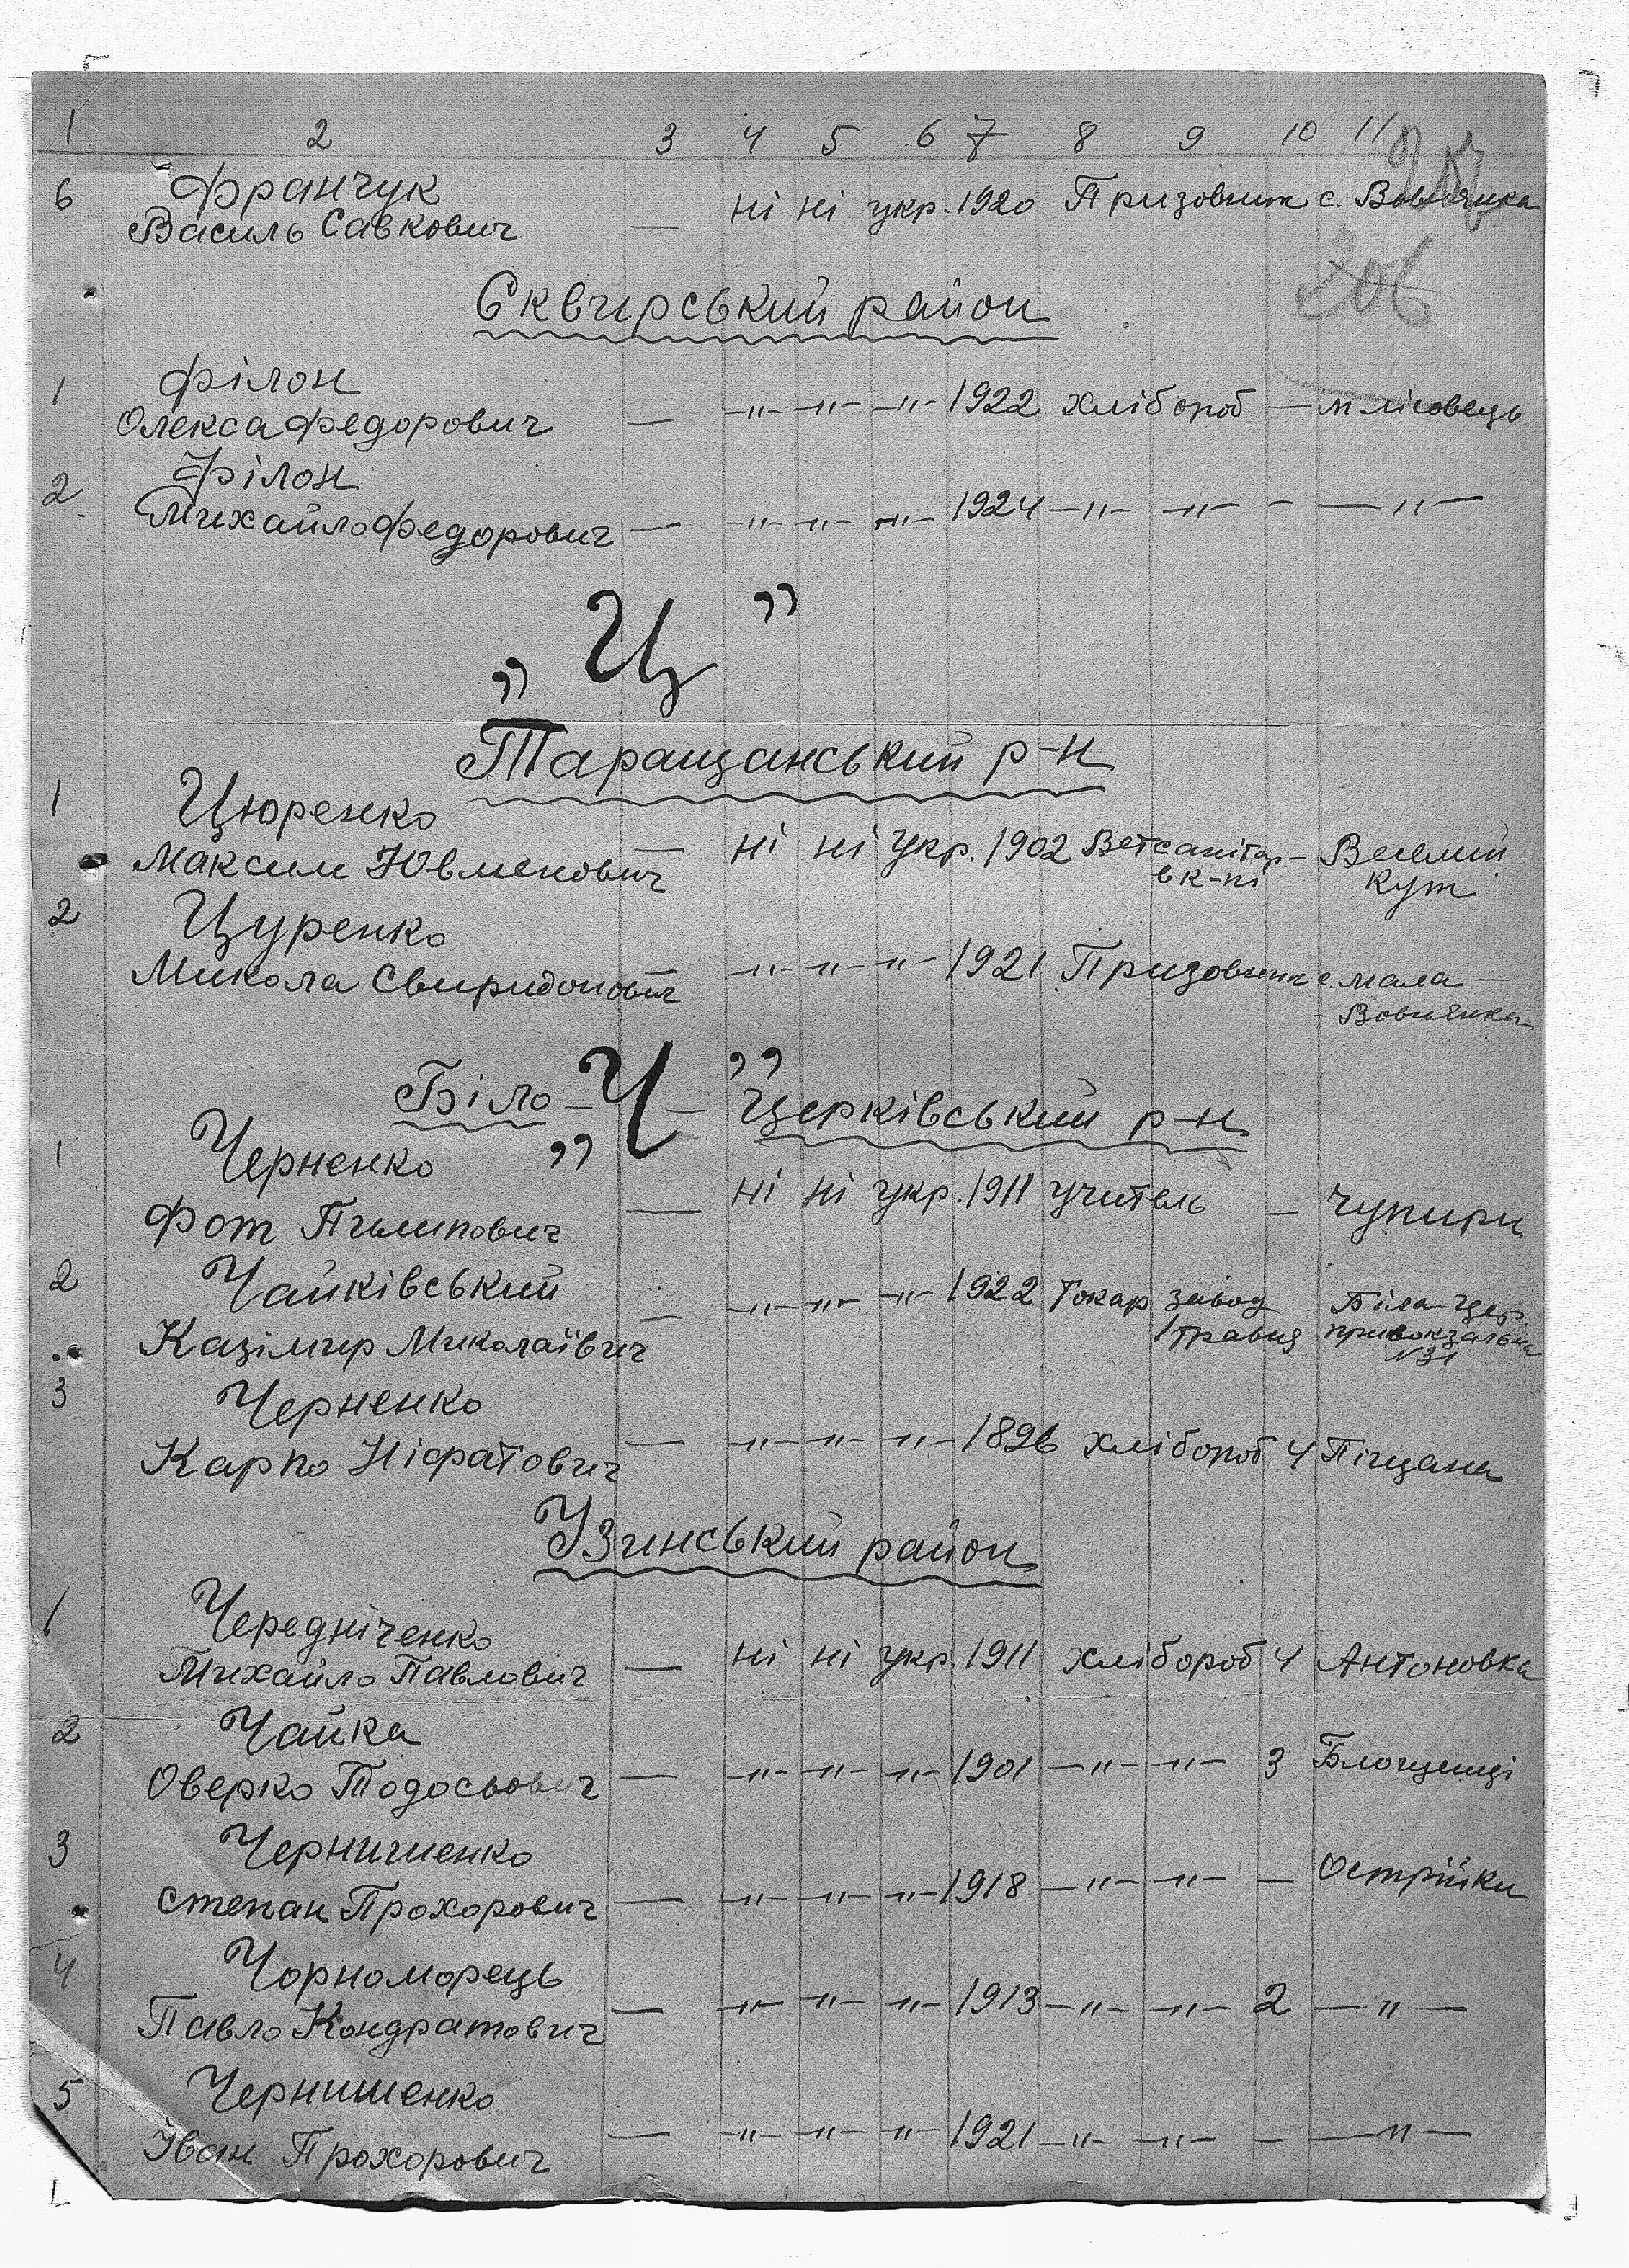 1 2 3 4 5 6 7 8 9 10 11
206
6 Франчук
Василь Савкович — ні ні укр. 1920 Призовник с. Вовнянка
Сквирський район
1 Філон
Олекса Федорович — -〃- -〃- -〃- 1922 хлібороб — м лісовець
2 Філон
Михайло Федорович — -〃- -〃- -〃- 1924 -〃- -〃- - -〃-
„Ц”
Таращанський р-н
1 Цюренко
Максим Ювменович — ні ні укр. 1902 Ветсанітар - Веселий
в к-пі кут
2 Цуренко
Микола Свиридонович — -〃- -〃- -〃- 1921 Призовник с. мала
Вовнянка
„Ч”
Біло - Церківський р-н
1 Черненко
Фот Пилипович — ні ні укр. 1911 учитель — Чупири
2 Чайківський
Казімир Миколаївич — -〃- -〃- -〃- 1922 Токар завод Біла-Цер.
1 травня привокзальна
№31
3 Черненко
Карпо Ніфатович — -〃- -〃- -〃- 1896 хлібороб 4 Піщана
Узинський район
1 Чередніченко
Михайло Павлович — ні ні укр. 1911 хлібороб 4 Антоновка
2 Чайка
Оверко Тодосьович — -〃- -〃- -〃- 1901 -〃- -〃- 3 Блощенці
3 Чернишенко
Степан Прохорович — -〃- -〃- -〃- 1918 -〃- -〃- — Острійки
4 Чорноморець
Павло Кондратович — -〃- -〃- -〃- 1913 -〃- -〃- 2 -〃-
5 Чернишенко
Іван Прохорович — -〃- -〃- -〃- 1921 -〃- -〃- - -〃-